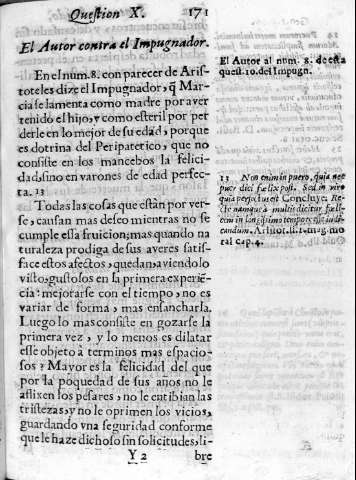 Question X. 171
El Autor contra el Impugnador.
En el num. 8. con parecer de Aris-
toteles dize el Impugnador, q̃ Mar-
cia se lamenta como madre por aver
tenido el hijo, y como esteril por per
derle en lo mejor de su edad, porque
es dotrina del Peripatetico, que no
consiste en los mancebos la felici-
dad, sino en varones de edad perfec-
ta. 13
Todas las cosas que están por ver-
se, causan mas deseo mientras no se
cumple essa fruicion; mas quando na
turaleza prodiga de sus averes satis-
face estos afectos, quedan, aviendolo
visto, gustosos en la primera experiē-
cia: mejorarse con el tiempo, no es
variar de forma, mas ensancharla.
Luego lo mas consiste en gozarse la
primera vez, y lo menos es dilatar
esse objeto à terminos mas espacio-
sos? Mayor es la felicidad del que
por la poquedad de sus años no le
aflixen los pesares, no le entibian las
tristezas, y no le oprimen los vicios,
guardando vna seguridad conforme
que le haze dichoso sin solicitudes, li-
Y 2 bre
El Autor al num. 8. de esta
quest. 10. del Impugn.
13 Non enim in puero, quia nec
puer dici fœlix post. Sed in viro
quia perfectus est Concluye. Re
cte namque à multis dicitur fœli-
cem in longissimo tempore esse iudi-
candum. Aristot. li. 1. mag. mo
ral cap. 4.